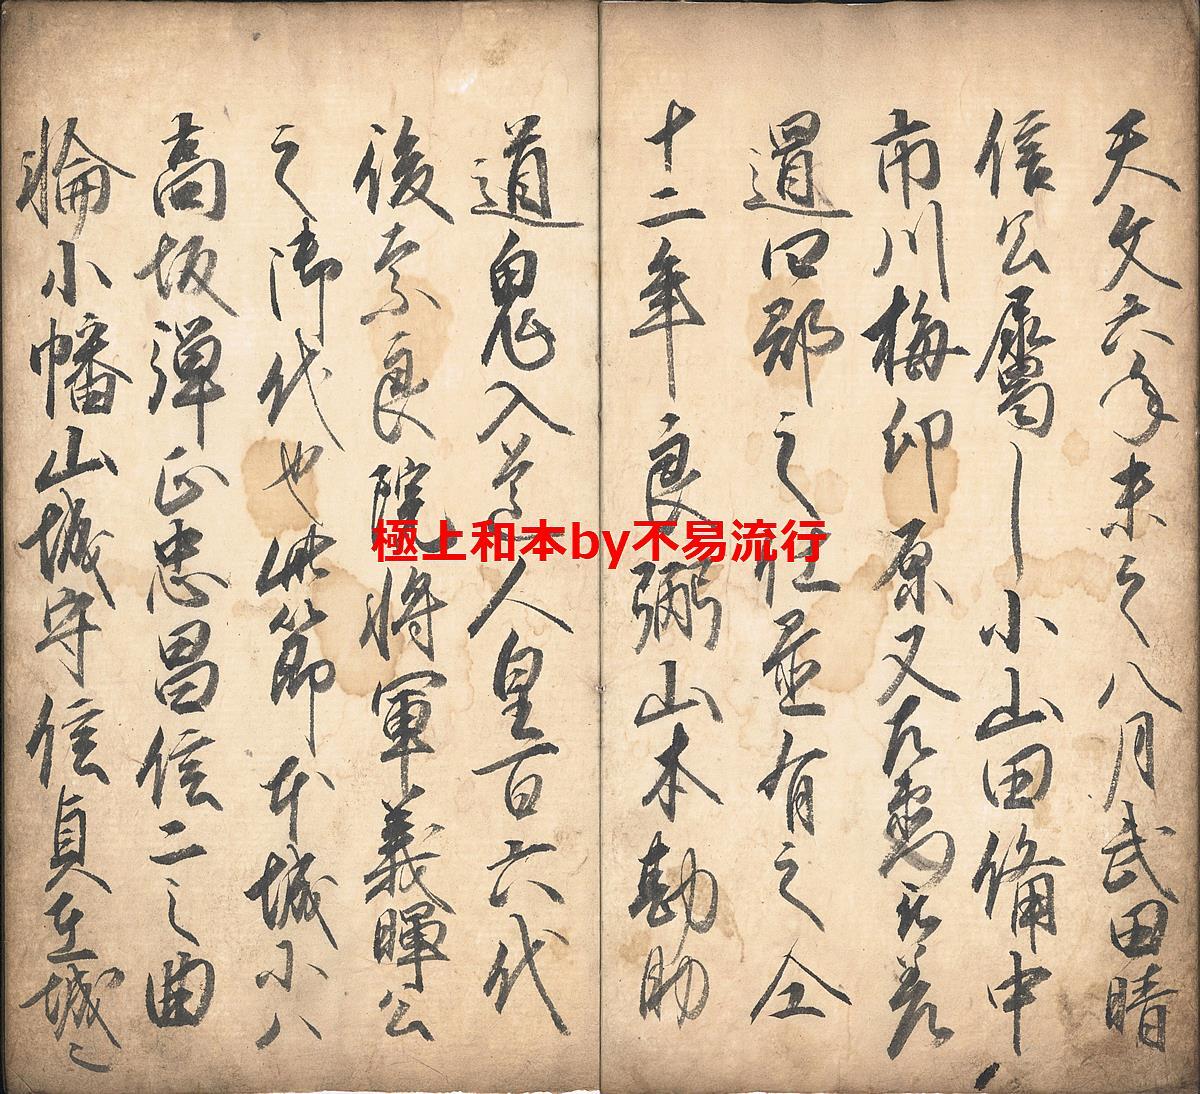 天文六年未之八月武田晴
信公属し小山田備中
市川梅印原又左衛門差
遣口郡之
並有之仝
十二年良弼山本勘助
道鬼入道人皇百六代
後奈良院将軍義暉公
之御代也此節本城小八
高坂弾正忠昌信二之曲
輪小幡山城守信貞在城之
極上和本by不易流行